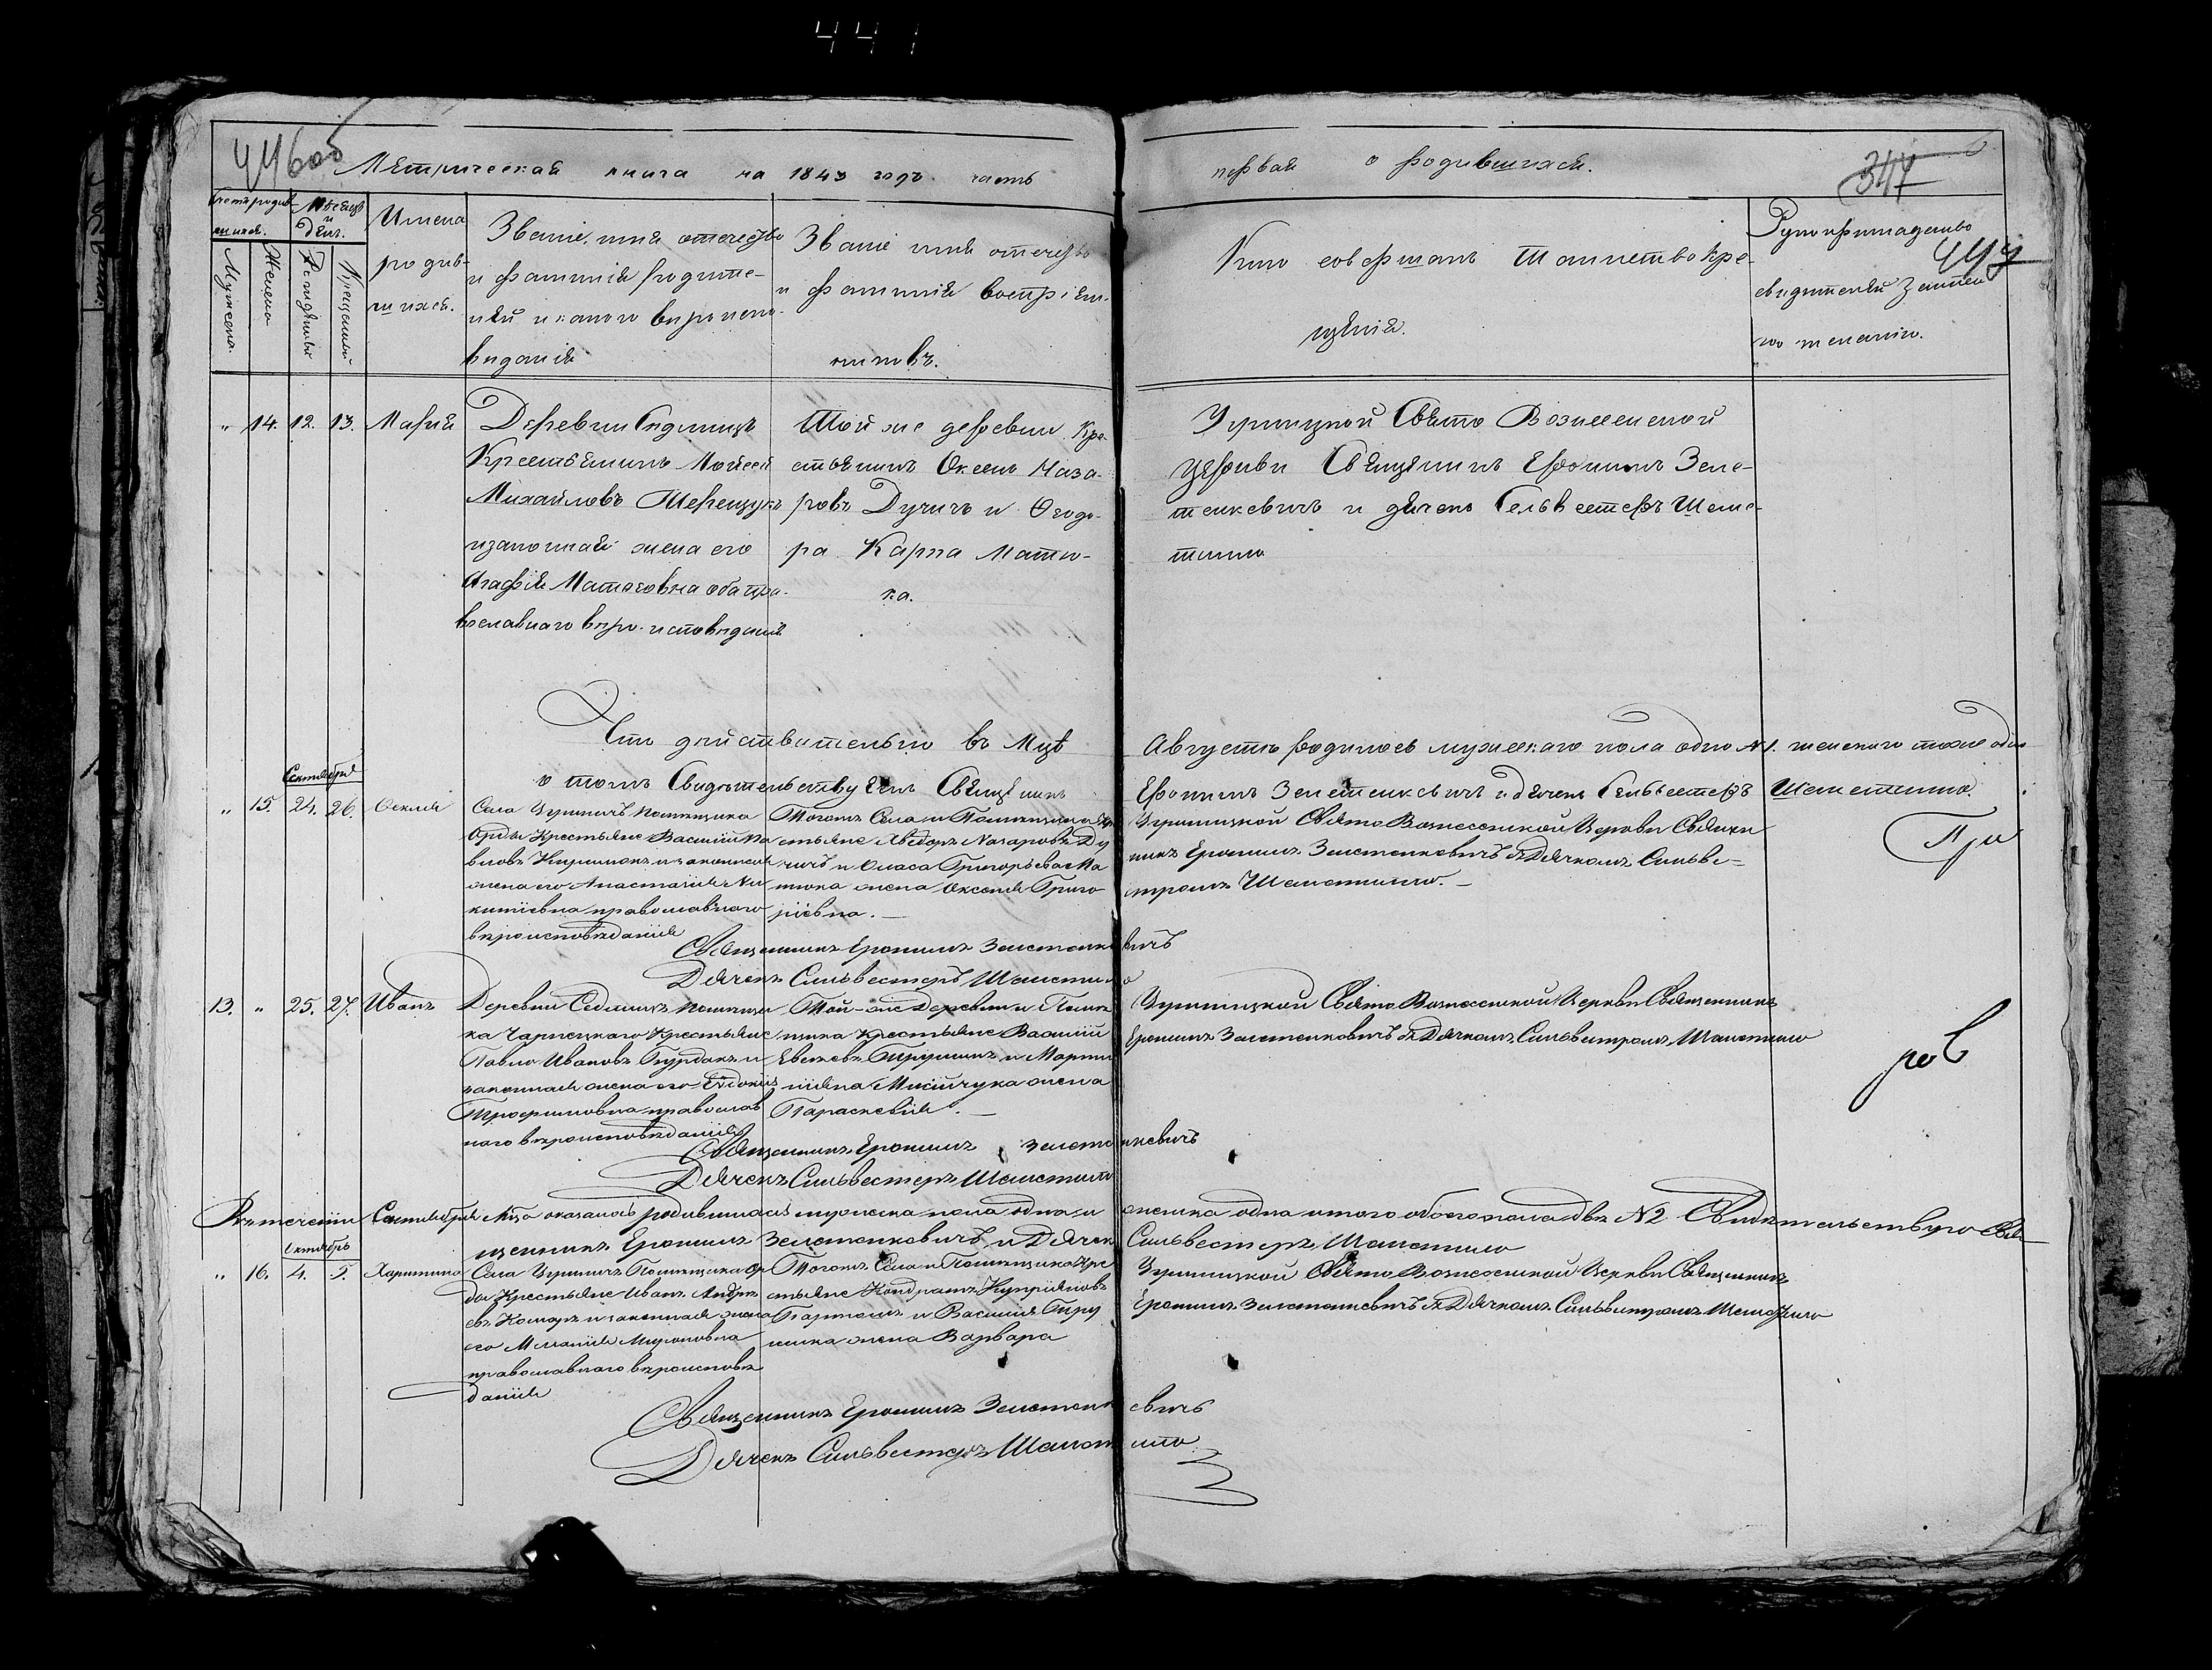 441
446об
Метрическая книга на 1843 годъ часть первая о родившихся.
347
447
Счетъ родив-
шихся.
Мужеска.
Женска
Мѣсяцъ
и
день.
Рожденій
Крещеній
Имена
родив-
шихся.
Званіе, имя отечество
и фамилія родите-
лей и какого вѣроиспо-
вѣданія
Званіе имя отечество
и фамилія воспріем-
никовъ.
Кто совершалъ таинство кре-
щенія.
Рукоприкладство
свидетелей записи
по желанію.
" 14. 12. 13. Марія
Деревни Седлищъ
Крестьянинъ Мойсей
Михайловъ Терещукъ
изаконная жена его
Агафія Матѳеовна оба пра-
вославнаго вѣро-исповѣданія
Той же деревни Кре-
стьянинъ Оксенъ Наза-
ровъ Дучичъ и Ѳеодо-
ра Карпа Матю-
ка.
Угриницкой Свято Вознесенской
церкви Священникъ Еронимъ Зеле-
тенкевичъ и дячекъ Сельвестеръ Шеме-
тилло
Что дѣйствительно въ Мцѣ Августѣ родилось мужескаго пола одно №1. женскаго тоже одно
о томъ Свидѣтельствуемъ Священникъ Еронимъ Зелетенкевичъ и дячекъ Сельвестеръ Шеметилло.
Сентября
" 15. 24. 26. Фекля
Села Угриничъ помѣщика
Орды Крестьяне Василій Па
вловъ Киримокъ и законная
жена его Анастасія Ни
китіевна православнаго
вѣроисповѣданія
Тогожъ Села и Помѣщика Кре
стьяне Ѳведоръ Назаровъ Ду
чичъ и Власа Григорьева Ма
тюка жена Оксенія Григо
ріевна.
Угриницкой Свято Вознесенской Церкви Священ
никъ Еронимъ Зелетенкевичъ съ Дячкомъ Сильве=
стромъ Шеметилло.
При
Священникъ Еронимъ Зелетенкевичъ
Дячекъ Сильвестеръ Шеметилло
13. " 25. 27. Иванъ
Деревни Седлищъ помѣщи
ка Чарнецкаго Крестьяне
Павло Ивановъ Бурдакъ и
законная жена его Евдокія
Трофимовна православ
наго вѣроисповѣданія
Той-же Деревни и Помѣ
щика Крестьяне Василій
Евсеевъ Трушикъ и Марти
ніяна Мисійчука жена
Параскевія.
Угриницкой Свято Вознесенской Церкви Священникъ
Еронимъ Зелетенкевичъ съ Дячкомъ Сильвестромъ Шеметилло
ров
Священникъ Еронимъ Зелетенкевичъ
Дячекъ Сильвестеръ Шеметилло
Въ теченіи Сентября Мца оказалось родившихся мужеска пола одна и женска одна итого обоего пола двѣ №2 Свидѣтельствую Свя
щенникъ Еронимъ Зелетенкевичъ и Дячекъ Сильвестеръ Шеметилло
Октябрь
" 16. 4. 5. Харитина
Села Угриничъ Помѣщика Ор
ды Крестьяне Иванъ Андре
евъ Комаръ и законная жена
его Меланія Мироновна
православнаго вѣроисповѣ
данія
Тогожъ Села и Помѣщика Кре
стьяне Кондратъ Купріяновъ
и Василія Тру
шика жена Варвара
Угриницкой Свято Вознесенской Церкви Священникъ
Еронимъ Зелетенкевичъ съ Дячкомъ Сильвестромъ Шеметилло
Священникъ Еронимъ Зелетенкевичъ
Дячекъ Сильвестеръ Шеметилло